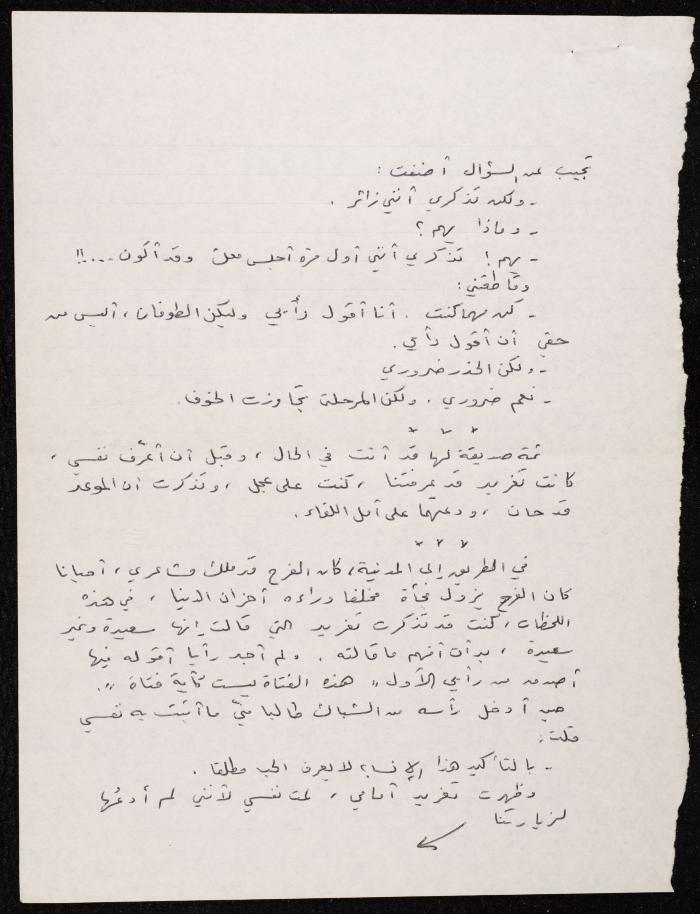 تجيب عن السؤال أضفت :
- ولكن تذكري أنني زائر .
- وماذا يهم ؟
- يهم ! تذكري أنني أول مرة أجلس معك وقد أكون ....!!
وقاطعتني :
- كن مهما كنت . أنا أقول رأيي وليكن الطوفان ، أليس من
حقي أن أقول رأيي .
- ولكن الحذر ضروري
- نعم ضروري . ولكن المرحلة تجاوزت الخوف .
* * *
ثمة صديقة لها قد أتت في الحال ، وقبل أن أعرّف نفسي ،
كانت تغريد قد عرفتنا ، كنت على عجل ، وتذكرت أن الموعد
قد حان ، ودعتهما على أمل اللقاء .
* * *
في الطريق إلى المدينة ، كان الفرح قد ملك مشاعري ، أحيانا
كان الفرح يزول فجأة مخلفا وراءه أحزان الدنيا ، في هذه
اللحظات ، كنت قد تذكرت تغريد التي قالت إنها سعيدة وغير
سعيدة ، بدأت أفهم ما قالته . ولم أجد رأيا أقوله فيها
أصدق من رأيي الأول " هذه الفتاة ليست كأية فتاة " .
حين أدخل رأسه من الشباك طالبا منّي ما أثبت به نفسي
قلت :
- بالتأكيد هذا الإنسان لا يعرف الحب مطلقا .
وظهرت تغريد أمامي ، لمت نفسي لأنني لم أدعُها
لزيارتنا